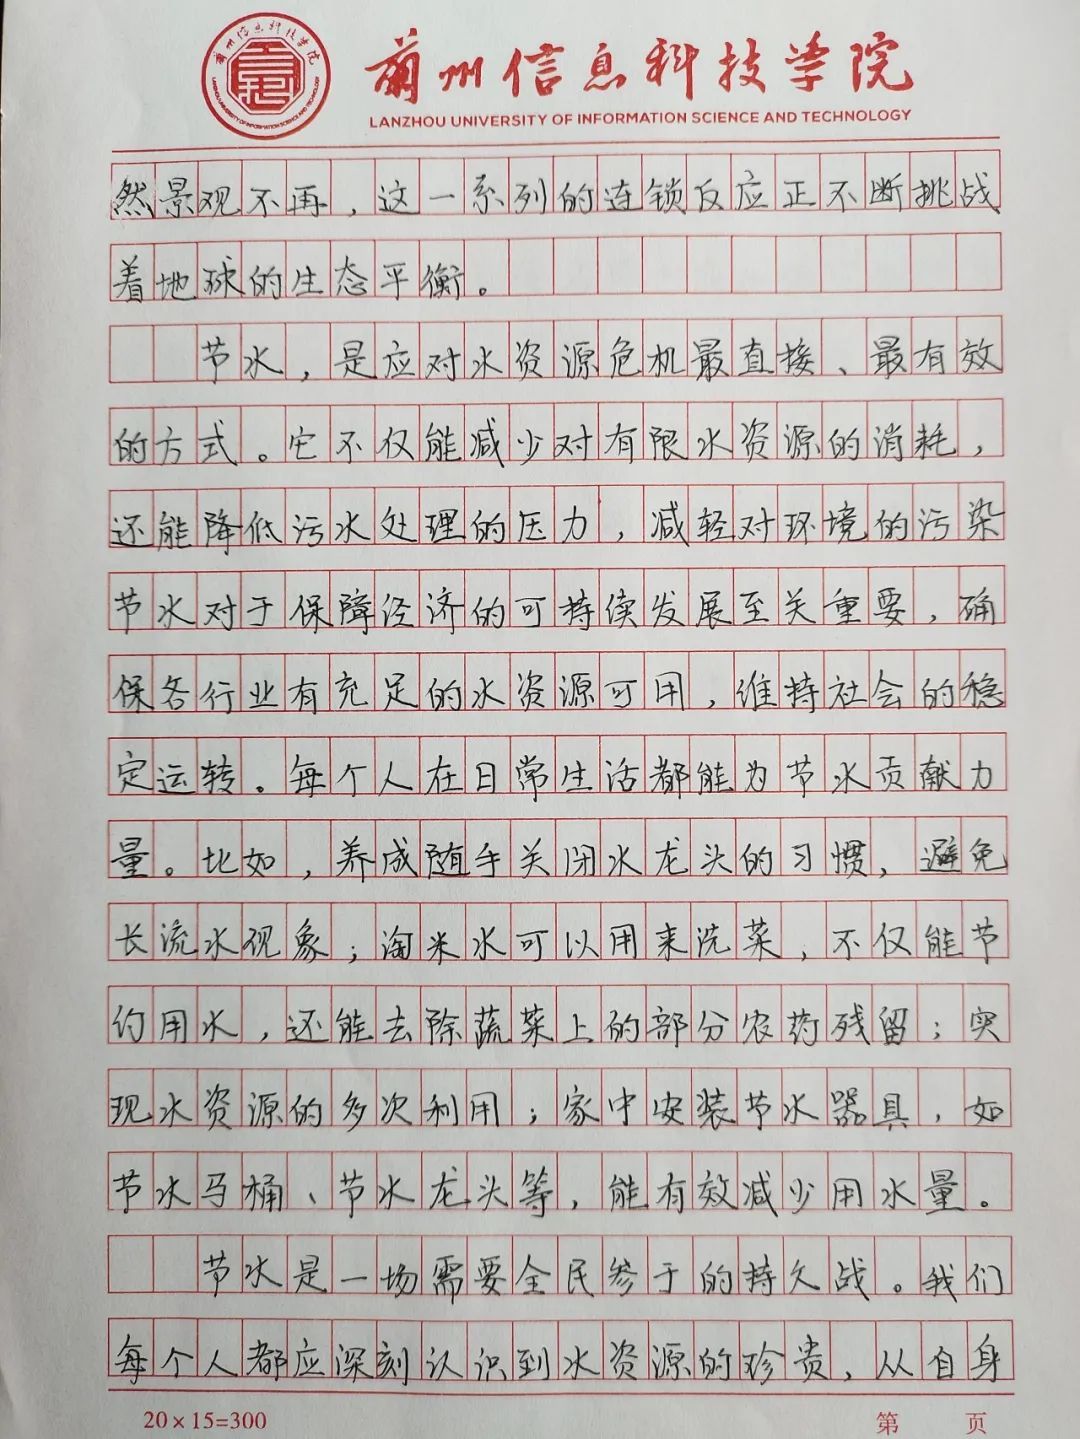 蘭州信息科技学院
LANZHOU UNIVERSITY OF INFORMATION SCIENCE AND TECHNOLOGY
蘭州信息科技学院
LANZHOU UNIVERSITY OF INFORMATION SCIENCE AND TECHNOLOGY
然景观不再，这一系列的连锁反应正不断挑战
着地球的生态平衡。
节水，是应对水资源危机最直接、最有效
的方式。它不仅能减少对有限水资源的消耗，
还能降低污水处理的压力，减轻对环境的污染
节水对于保障经济的可持续发展至关重要，确
保各行业有充足的水资源可用，维持社会的稳
定运转。每个人在日常生活都能为节水贡献力
量。比如，养成随手关闭水龙头的习惯，避免
长流水现象；淘米水可以用来洗菜，不仅能节
约用水，还能去除蔬菜上的部分农药残留；实
现水资源的多次利用；家中安装节水器具，如
节水马桶、节水龙头等，能有效减少用水量。
节水是一场需要全民参于的持久战。我们
每个人都应深刻认识到水资源的珍贵，从自身
20×15=300
第 页